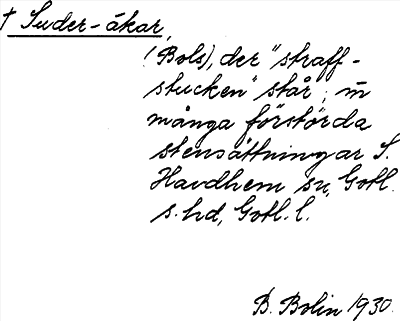 † Suder-åkar,
(Bols), der "straff-
stucken" står; m̄
många förstörda
stensättningar S.
Havdhem sn, Gotl.
s. hd, Gotl. l.
B. Bolin 1930.